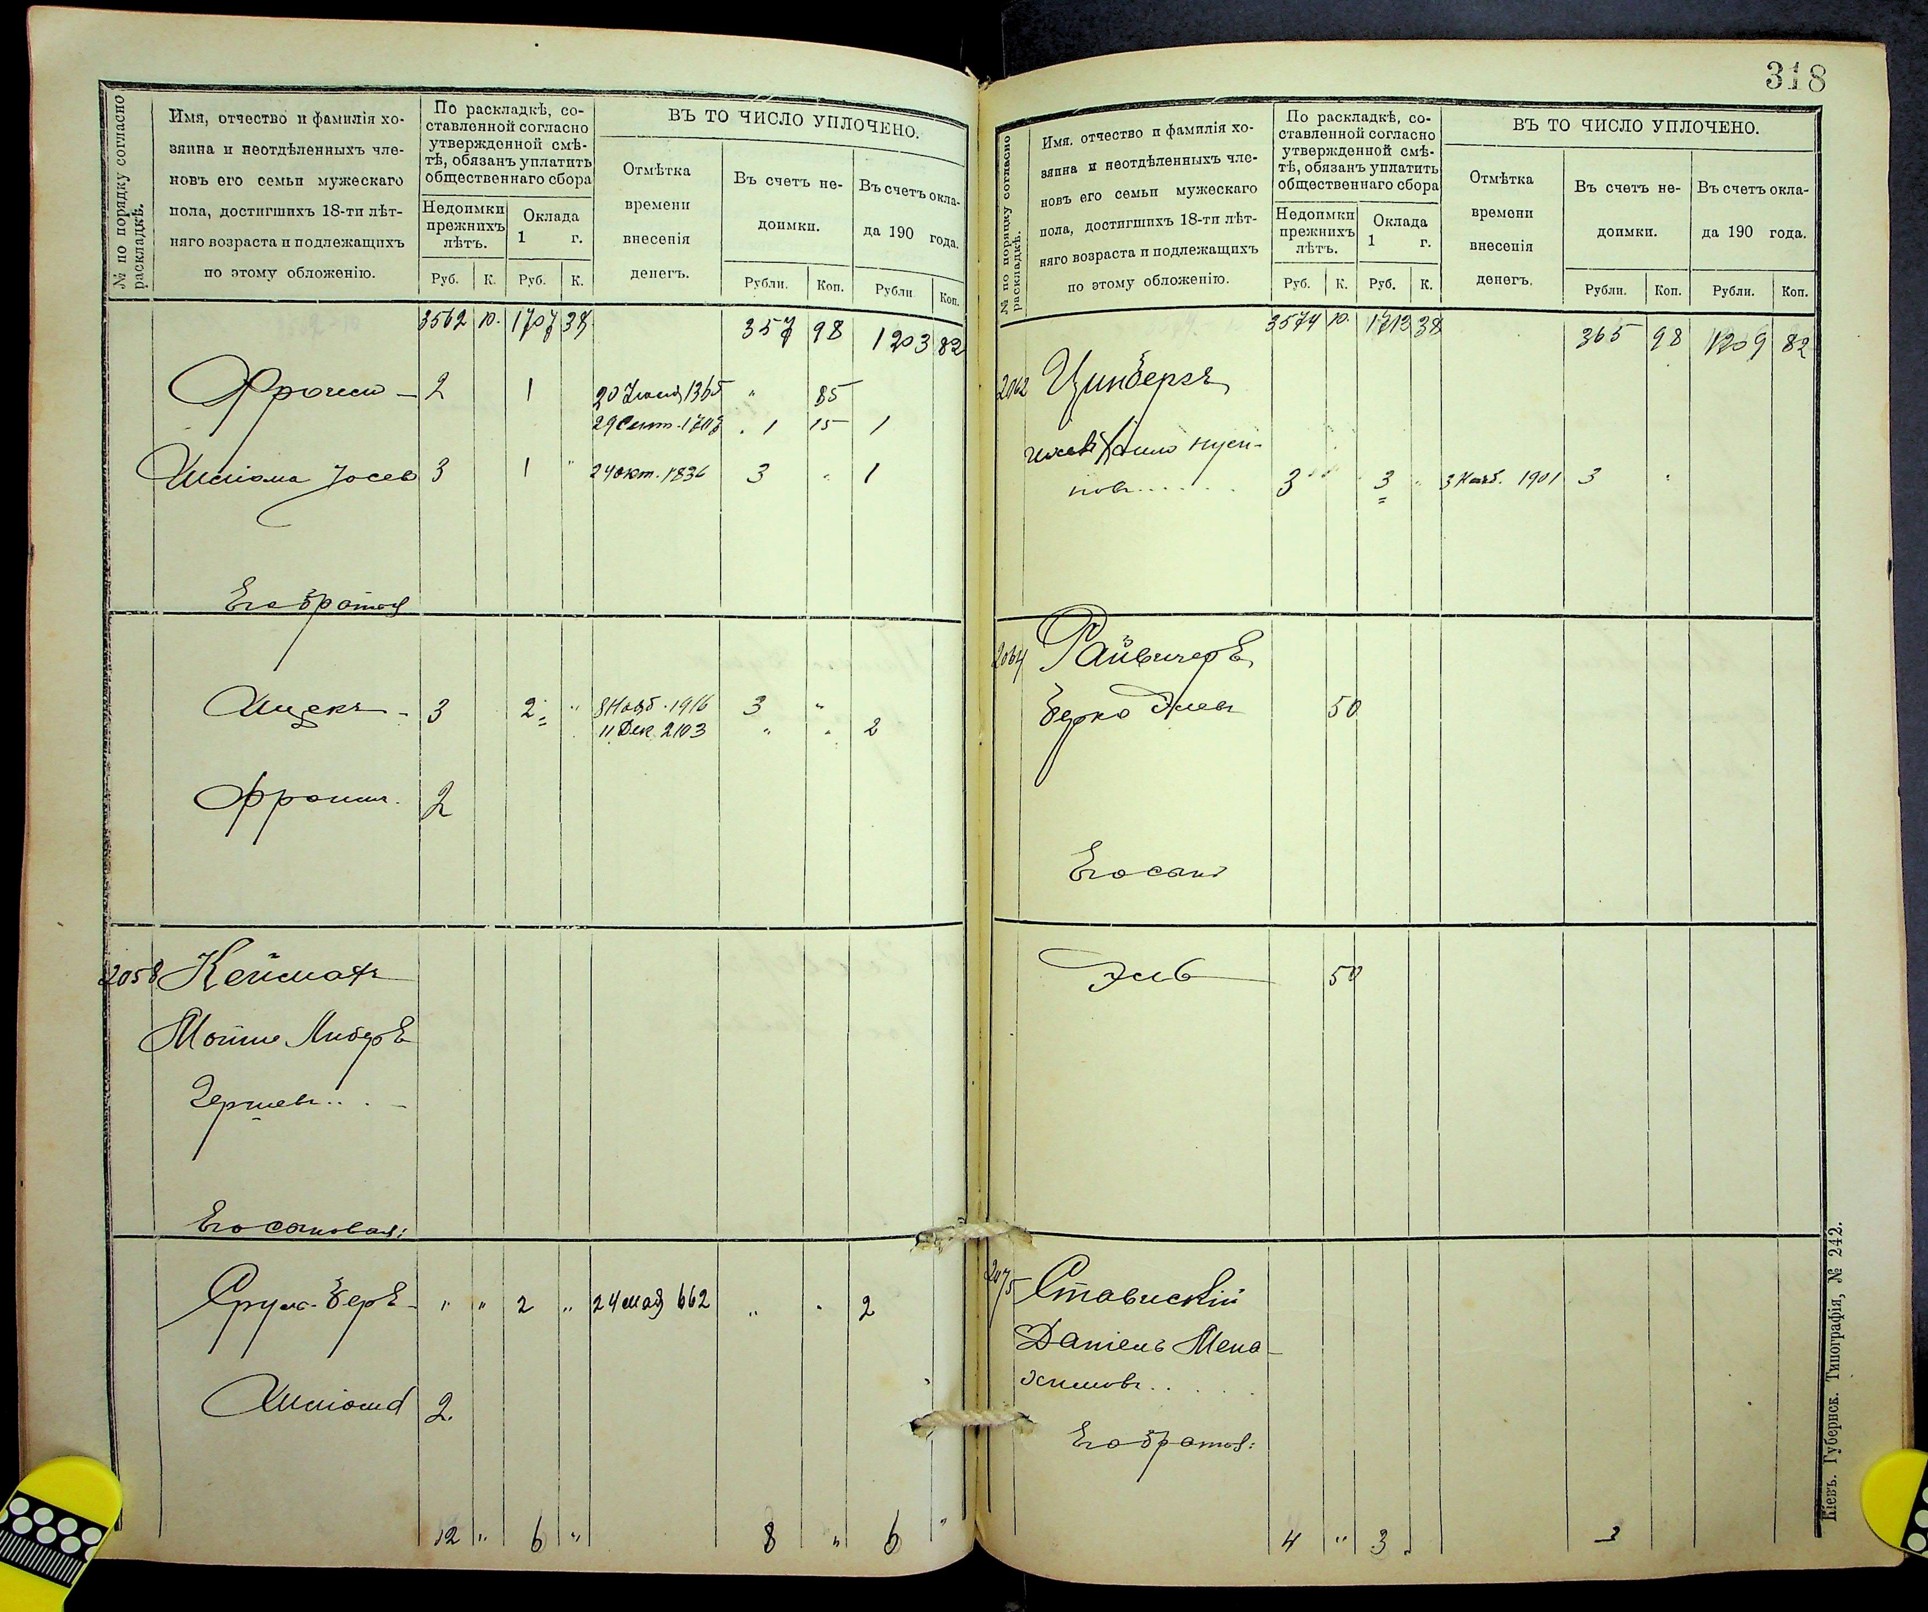 № по порядку согласно раскладкѣ.
Имя, отчество и фамилія хо-
зяина и неотдѣленныхъ чле-
новъ его семьи мужескаго
пола, достигшихъ 18-ти лѣт-
няго возраста и подлежащихъ
по этому обложенію.
По раскладкѣ, со-
ставленной согласно
утвержденной смѣ-
тѣ, обязанъ уплатить
общественнаго сбора
Недоимки
прежнихъ
лѣтъ.
Оклада
1 г.
Руб. К. Руб. К.
ВЪ ТО ЧИСЛО УПЛОЧЕНО.
Отмѣтка
времени
внесенія
денегъ.
Въ счетъ не-
доимки.
Въ счетъ окла-
да 190 года.
Рубли. Коп. Рубли Коп.
3562 10. 1707 38 357 98 1203 82
2 1 20 Іюля 1365 " 85
29 Сент. 1703 1 15 1
Шліома Іосев 3 1 " 24 окт. 1836 3 " 1
Его братья
Ицекъ - 3 2 " 8 Нояб. 1916 3 "
11 Дек. 2103 " " 2
Фроим. 2
2058 Кейсман
Мойше Либер
Гершев...
Его сыновья:
Срул-Бер - " " 2 " 24 мая 662 " " 2
Шліома 2.
12 " 6 " 8 " 6 "
318
№ по порядку согласно раскладкѣ.
Имя, отчество и фамилія хо-
зяина и неотдѣленныхъ чле-
новъ его семьи мужескаго
пола, достигшихъ 18-ти лѣт-
няго возраста и подлежащихъ
по этому обложенію.
По раскладкѣ, со-
ставленной согласно
утвержденной смѣ-
тѣ, обязанъ уплатить
общественнаго сбора
Недоимки
прежнихъ
лѣтъ.
Оклада
1 г.
Руб. К. Руб. К.
ВЪ ТО ЧИСЛО УПЛОЧЕНО.
Отмѣтка
времени
внесенія
денегъ.
Въ счетъ не-
доимки.
Въ счетъ окла-
да 190 года.
Рубли. Коп. Рубли. Коп.
3574 10. 1713 38 365 98 1209 82
2062 Цинберг
Нусы-
нов...... 3 " 3 " 3 Нояб. 1901 3 "
2064 Райвичер
Берко Элев 50
Его сын
Эль 50
2075 Ставискій
Даніель Мена-
химов.....
Его братья:
4 " 3 3
Кіевъ. Губернск. Типографія, № 242.